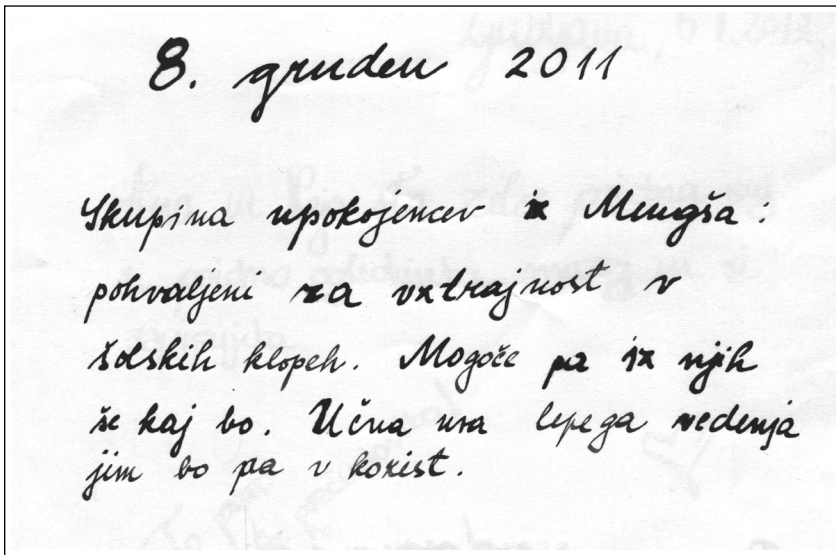 8. gruden 2011
Skupina upokojencev iz Mengša:
pohvaljeni za vztrajnost v
šolskih klopeh. Mogoče pa iz njih
še kaj bo. Učna ura lepega vedenja
jim bo pa v korist.